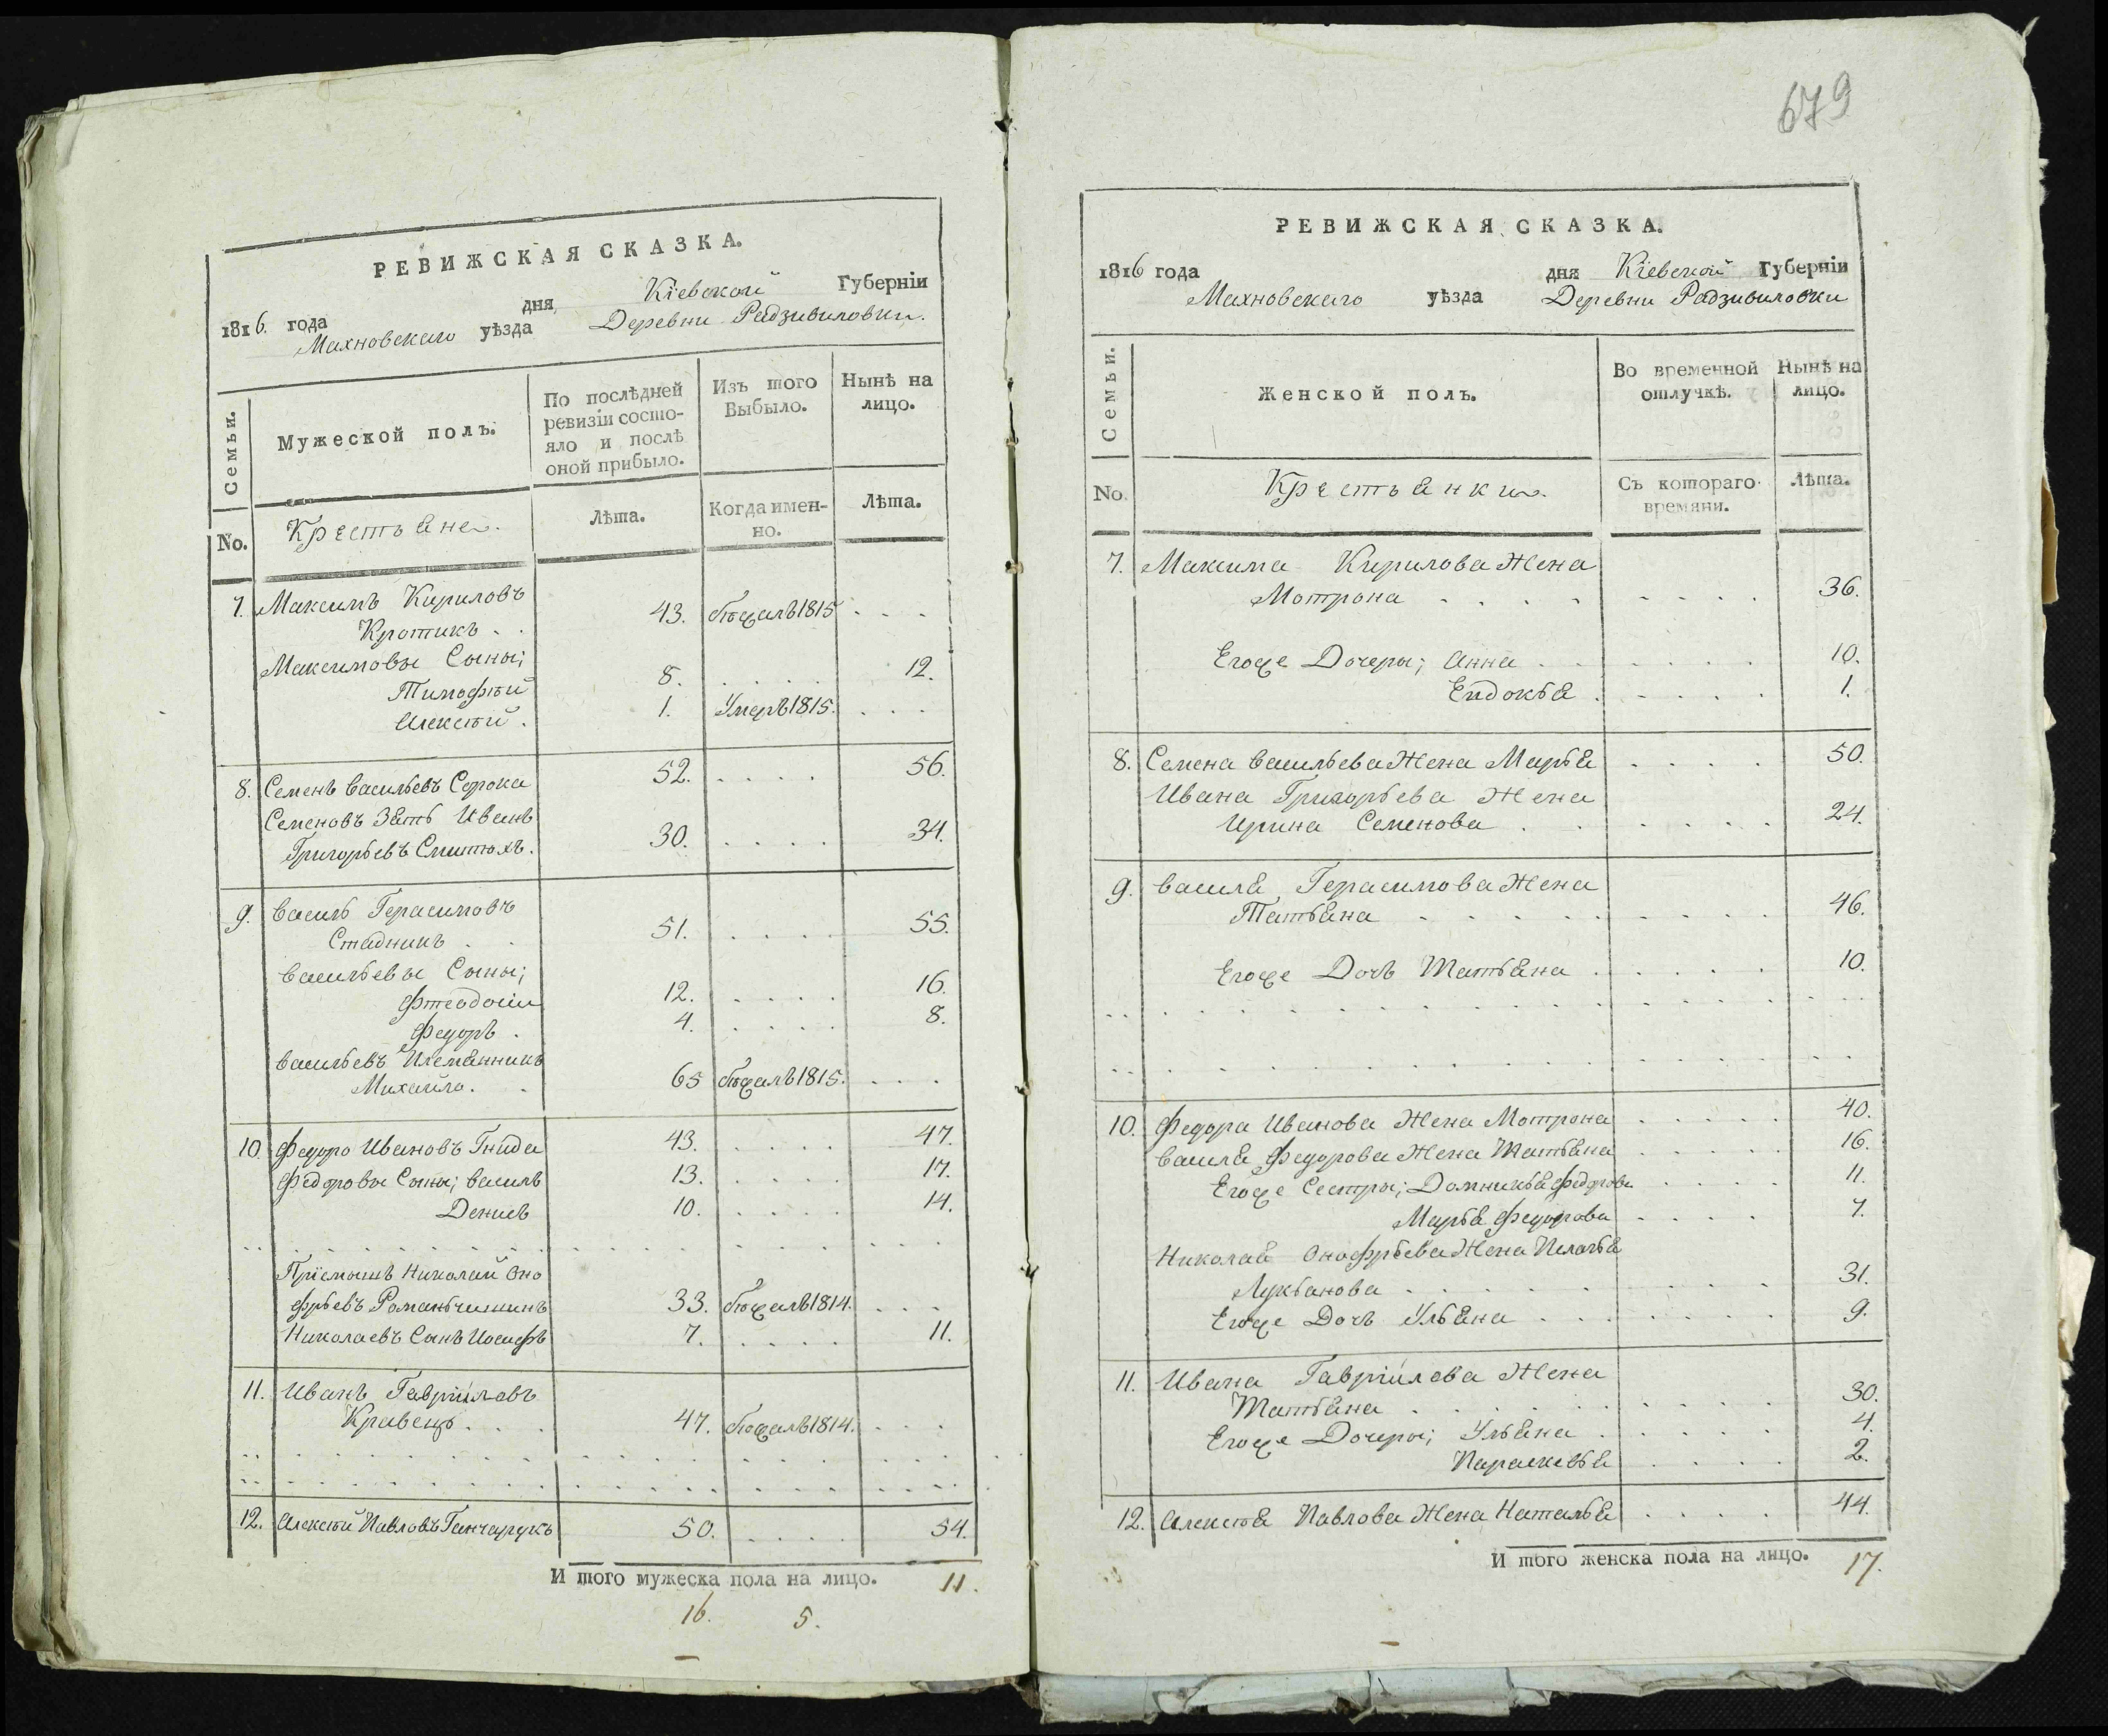 679
РЕВИЖСКАЯ СКАЗКА.
1816. года дня Кіевской Губерніи
Махновскаго уѣзда Деревни Радзивиловки.
Семьи.
Мужеской полъ.
По послѣдней ревизіи состо-
яло и послѣ оной прибыло.
Изъ того Выбыло.
Нынѣ на лицо.
No. Крестьяне. Лѣта. Когда имен-
но. Лѣта.
7. Максимъ Кириловъ
Кротикъ . . 43. бѣжалъ 1815 . . .
Максимовы Сыны;
Тимофѣй 8. . . . . 12.
Алексѣй . 1. Умеръ 1815. . . .
8. Семенъ Васильевъ Сорока 52. . . . . 56.
Семеновъ Зять Иванъ
Григорьевъ 30. . . . . 34.
9. Василь Герасимовъ
Стадникъ . . 51. . . . . 55.
Васильевы Сыны;
Фтеодосіи 12. . . . . 16.
Федоръ . 4. . . . . 8.
Васильевъ Племянникъ
Михайло. . 65 бѣжалъ 1815. . . .
10. Федоро Ивановъ Гнида 43. . . . . 47.
Федоровы Сыны; Василь 13. . . . . 17.
Денисъ 10. . . . . 14.
Пріемышъ Николай Оно
фрьевъ Романчишинъ 33. бѣжалъ 1814. . . .
Николаевъ Сынъ Иосифъ 7. . . . . 11.
11. Иванъ Гавріиловъ
Кравецъ. . . 47. бѣжалъ 1814. . . .
12. Алексѣй Павловъ Ганчарукъ 50. . . . . 54.
И того мужеска пола на лицо. 11.
16. 5.
РЕВИЖСКАЯ СКАЗКА.
1816 года дня Кіевской Губерніи
Махновскаго уѣзда Деревни Радзивиловки
Семьи.
Женской полъ.
Во временной отлучкѣ.
Нынѣ на лицо.
No. Крестьянки. Съ котораго
времяни. Лѣта.
7. Максима Кирилова Жена
Мотрона . . . . 36.
Егоже Дочеры; Анна . . 10.
Евдокья . 1.
8. Семена Васильева Жена Марья . . . . 50.
Ивана Григорьева Жена
Ирина Семенова . . 24.
9. Василя Герасимова Жена
Татьяна . . . . . 46.
Егоже Дочь Татьяна . . . . . 10.
10. Федора Иванова Жена Мотрона . . . . . 40.
Василя Федорова Жена Татьяна . . . . . 16.
Егоже Сестры; Домникья Федорова . . . . 11.
Марья Федорова . . . . 7.
Николая Онофрьева Жена Пелагья
Лукьянова . . . . . 31.
Егоже Дочь Ульяна . . . 9.
11. Ивана Гавріилова Жена
Татьяна . . . . . 30.
Егоже Дочеры; Ульяна . 4.
Параскевья . . . . 2.
12. Алексѣя Павлова Жена Наталья . . . . 44.
И того женска пола на лицо. 17.